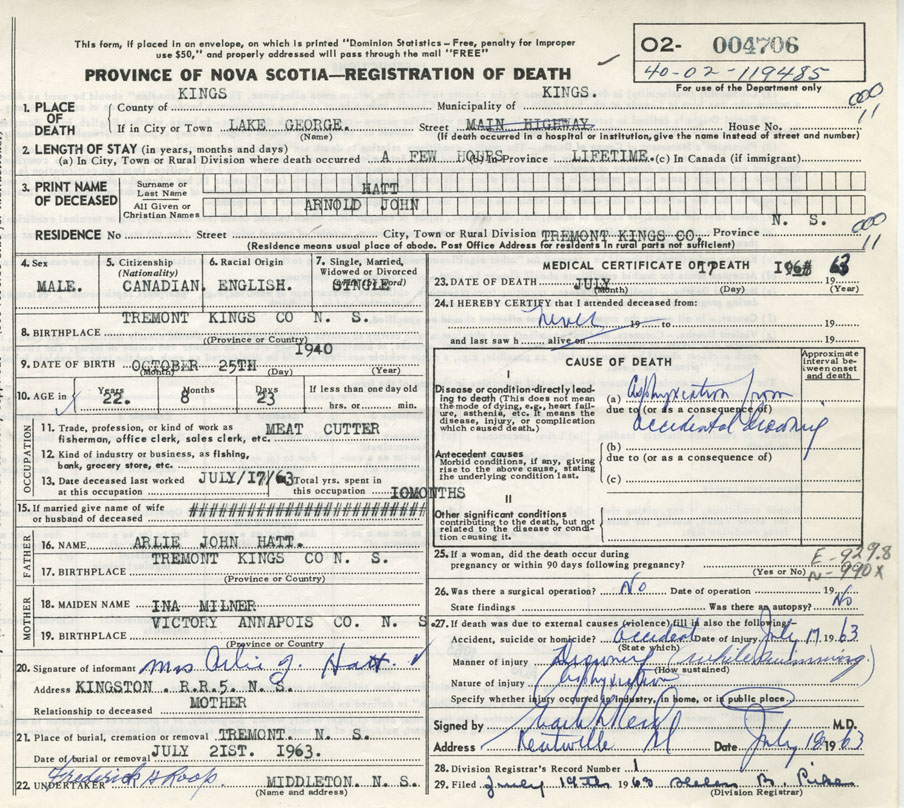 This form, if placed in an envelope, on which is printed "Dominion Statistics—Free, penalty for improper
use $50," and properly addressed will pass through the mail "FREE"
O2- 004706
40-02-119485
For use of the Department only
PROVINCE OF NOVA SCOTIA—REGISTRATION OF DEATH
1. PLACE OF DEATH
County of KINGS Municipality of KINGS.
If in City or Town LAKE GEORGE. Street MAIN HIGHWAY House No.
(Name) (If death occurred in a hospital or institution, give the name instead of street and number)
000
11
2. LENGTH OF STAY (in years, months and days)
(a) In City, Town or Rural Division where death occurred A FEW HOURS (b) In Province LIFETIME. (c) In Canada (if immigrant)
3. PRINT NAME OF DECEASED
Surname or Last Name HATT
All Given or Christian Names ARNOLD JOHN
RESIDENCE No Street City, Town or Rural Division TREMONT KINGS CO. Province N. S.
(Residence means usual place of abode. Post Office Address for residents in rural parts not sufficient)
000
11
4. Sex
MALE.
5. Citizenship
(Nationality)
CANADIAN.
6. Racial Origin
ENGLISH.
7. Single, Married,
Widowed or Divorced
SINGLE
8. BIRTHPLACE TREMONT KINGS CO N. S.
(Province or Country)
9. DATE OF BIRTH OCTOBER 25TH 1940
(Month) (Day) (Year)
10. AGE in Years 22. Months 8 Days 23 If less than one day old
hrs. or min.
OCCUPATION
11. Trade, profession, or kind of work as
fisherman, office clerk, sales clerk, etc. MEAT CUTTER
12. Kind of industry or business, as fishing,
bank, grocery store, etc.
13. Date deceased last worked
at this occupation JULY/17/63 Total yrs. spent in
this occupation 10MONTHS
15. If married give name of wife
or husband of deceased ########################
FATHER
16. NAME ARLIE JOHN HATT.
17. BIRTHPLACE TREMONT KINGS CO N. S.
(Province or Country)
MOTHER
18. MAIDEN NAME INA MILNER
19. BIRTHPLACE VICTORY ANNAPOIS CO. N. S.
(Province or Country)
20. Signature of informant Mrs Arlie J. Hatt.
Address KINGSTON . R.R.5. N. S.
Relationship to deceased MOTHER
21. Place of burial, cremation or removal TREMONT. N. S.
Date of burial or removal JULY 21ST. 1963.
22. UNDERTAKER Frederick A Roop MIDDLETON. N. S.
(Name and address)
MEDICAL CERTIFICATE OF DEATH
23. DATE OF DEATH JULY 17 19 63
(Month) (Day) (Year)
24. I HEREBY CERTIFY that I attended deceased from:
never 19 to 19
and last saw h alive on 19
CAUSE OF DEATH
Approximate
interval be-
tween onset
and death
I
Disease or condition directly lead-
ing to death (This does not mean
the mode of dying, e.g., heart failure,
asthenia, etc. It means the
disease, injury, or complication
which caused death.)
(a) Asphyxiation from
due to (or as a consequence of)
accidental drowning
(b)
due to (or as a consequence of)
Antecedent causes
Morbid conditions, if any, giving
rise to the above cause, stating
the underlying condition last.
(c)
II
Other significant conditions
contributing to the death, but not
related to the disease or condi-
tion causing it.
25. If a woman, did the death occur during
pregnancy or within 90 days following pregnancy?
(Yes or No)
E-929.8
N-990X
26. Was there a surgical operation? No Date of operation 19
State findings Was there an autopsy? No
27. If death was due to external causes (violence) fill in also the following:
Accident, suicide or homicide? Accident Date of injury July 17 19 63
(State which)
Manner of injury Drowning (while swimming.)
(How sustained)
Nature of injury Asphyxiation
Specify whether injury occurred in industry, in home, or in public place.
Signed by M.D.
Address Kentville Date July 19 63
28. Division Registrar's Record Number 1
29. Filed July 19th 19 63 Helen B. Pike
(Division Registrar)